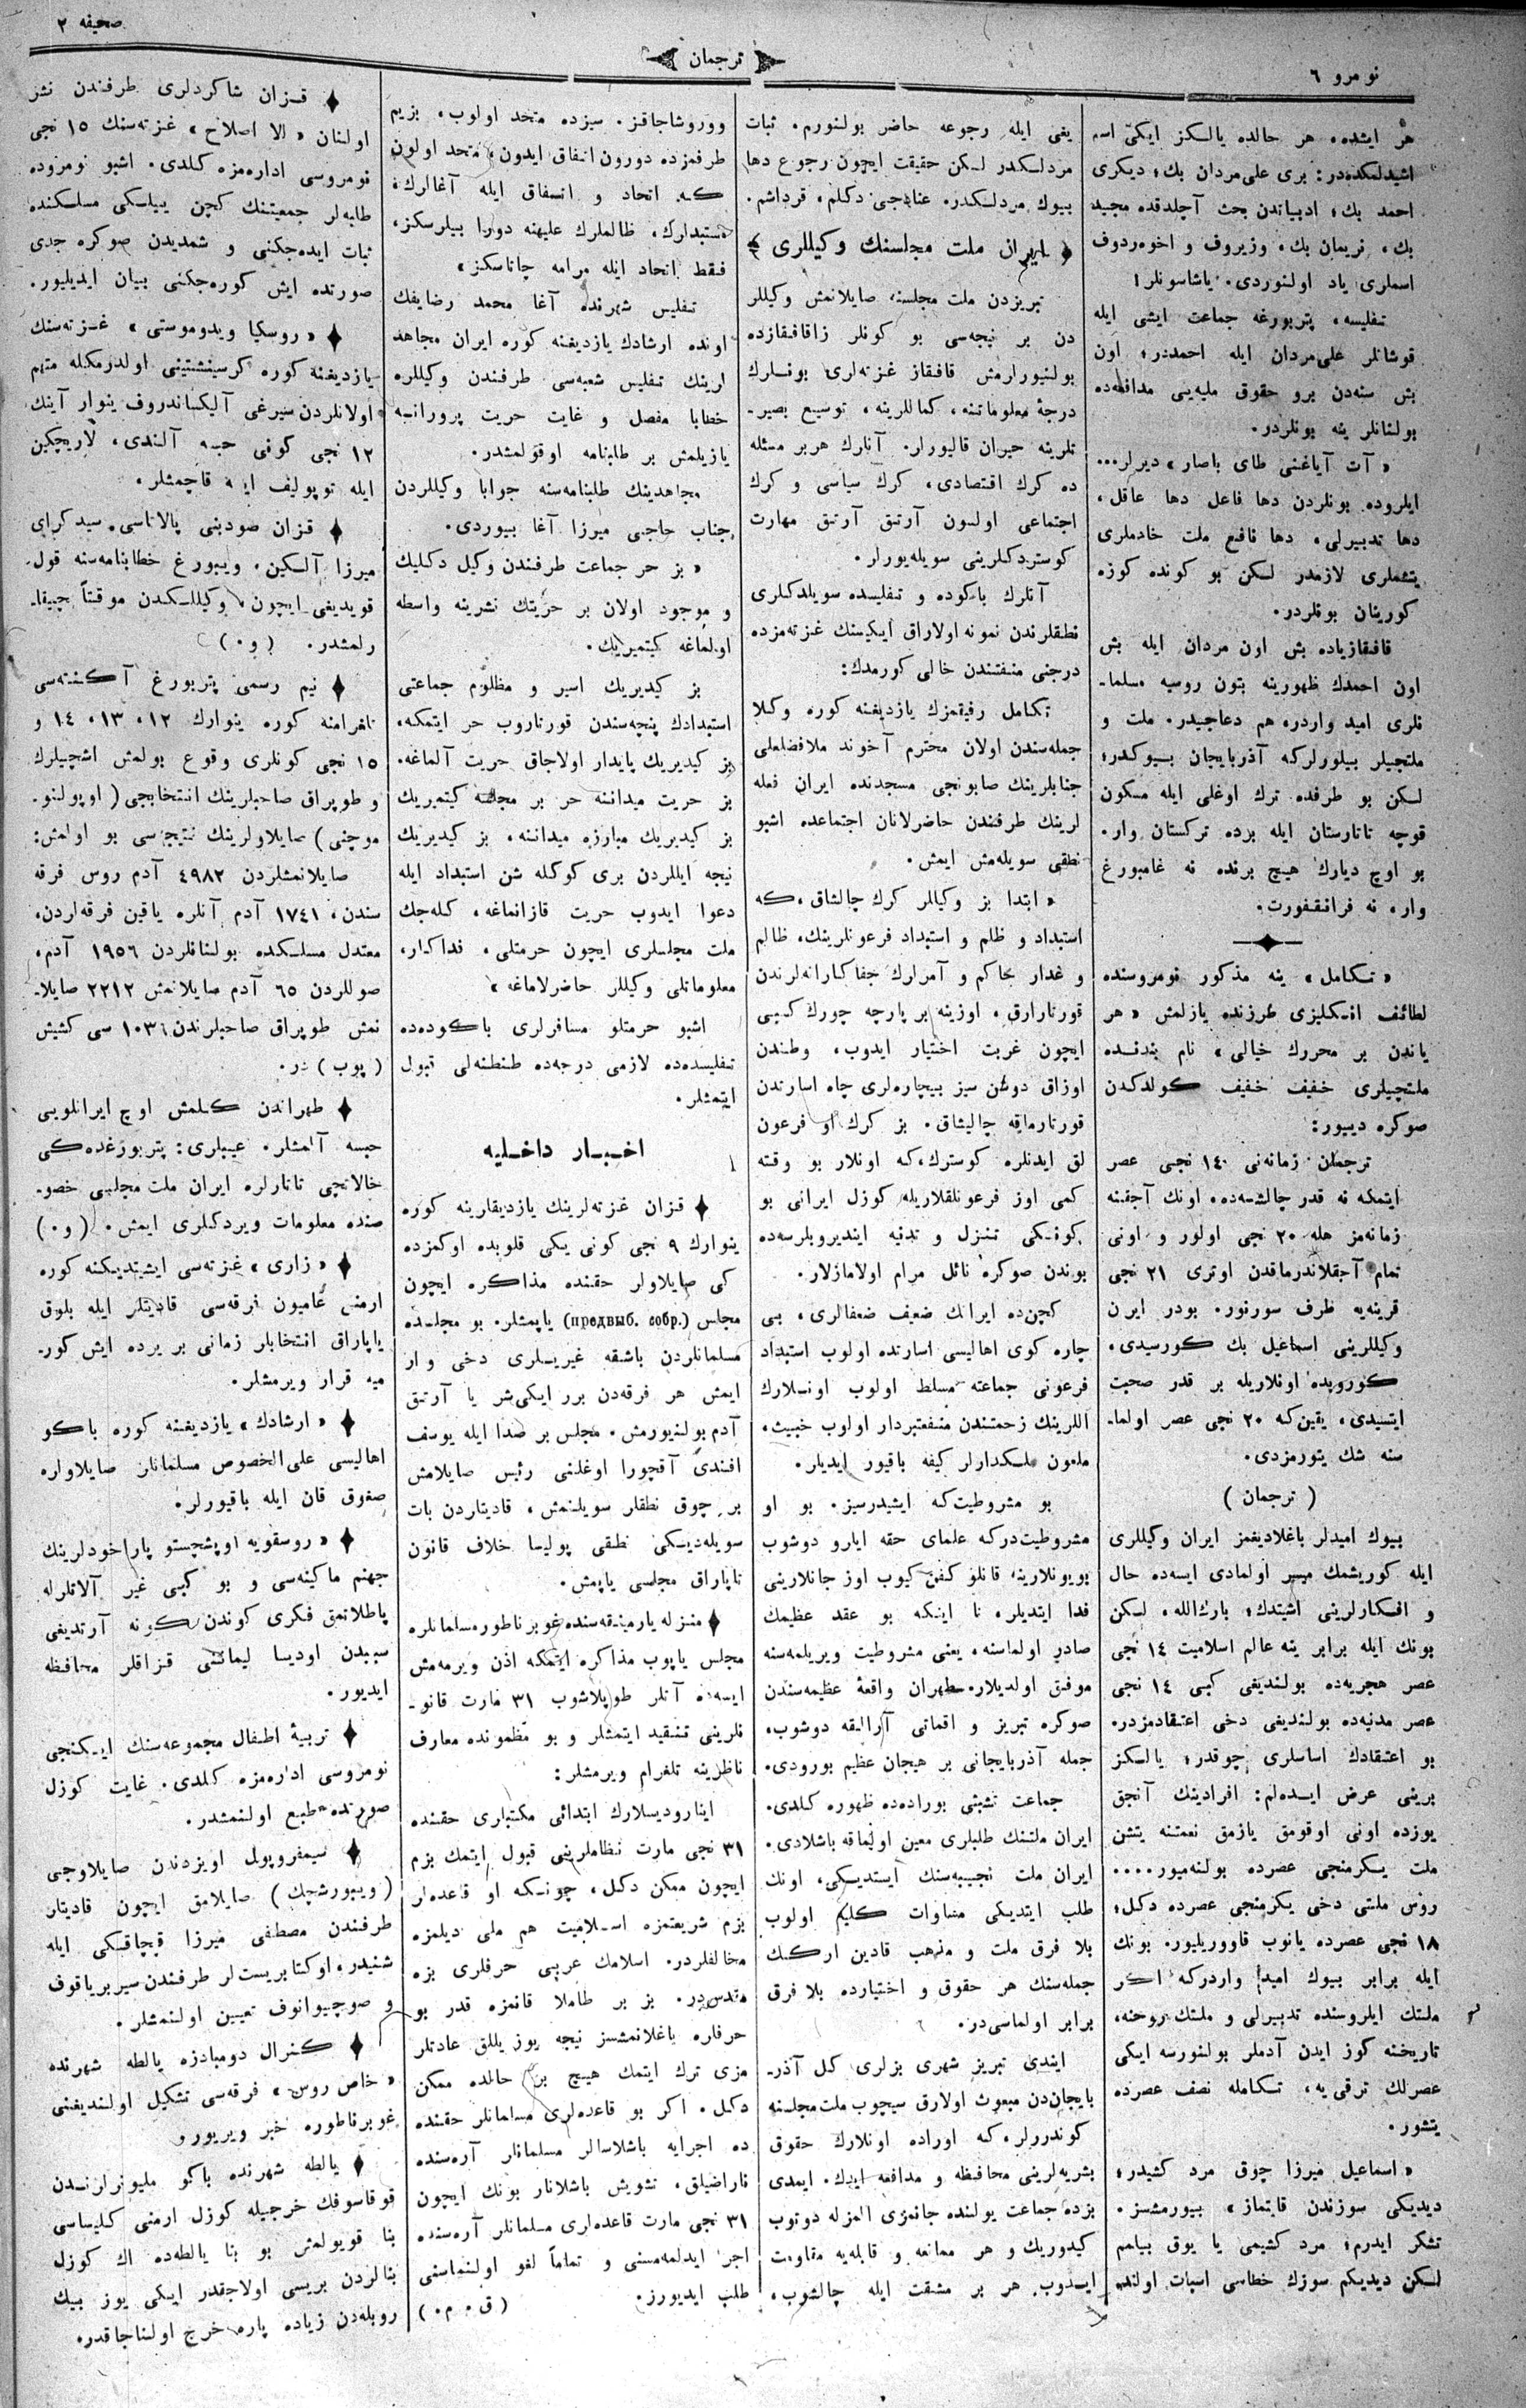 نومرو ٦
ترجمان
صحیفه ٢
هر ایشده، هر حالده یالكز ایكی اسم
اشیدلمكده‌در: بری علی‌مردان بك، دیكری
احمد بك؛ ادبیاتدن بحث آچلدقده مجید
بك، نریمان بك، وزیروف و اخوه‌ردوف
اسملری یاد اولنوردی. یاشاسونلر!
تفلیسه، پتربورغه جماعت ایشی ایله
قوشانلر علی‌مردان ایله احمددر؛ اون
بش سنه‌دن برو حقوق ملیه‌یی مدافعه‌ده
بولنانلر ینه بونلردر.
« آت آیاغنی طای باصار » دیرلر...
ایلروده بونلردن دها فاعل دها عاقل،
دها تدبیرلی، دها نافع ملت خادملری
یتشملری لازمدر لكن بو كونده كوزه
كورینان بونلردر.
قافقازیاده بش اون مردان ایله بش
اون احمدك ظهورینه بتون روسیه مسلما-
نلری امید واردر، هم دعاجیدر. ملت و
ملتچیلر بیلورلركه آذربایجان بیوكدر؛
لكن بو طرفده ترك اوغلی ایله مسكون
قوجه تاتارستان ایله برده تركستان وار.
بو اوچ دیارك هیچ برنده نه غامبورغ
وار، نه فرانقفورت.
« تكامل » ینه مذكور نومروسنده
لطائف انكلیزی طرزنده یازلمش « هر
یاندن بر محررك خیالی » نام بندنده
ملتچیلری خفیف خفیف كولدكدن
صوكره دییور:
ترجمان زمانه‌نی ١٤٠ نجی عصر
ایتمكه نه قدر چالشسه‌ده، اونك آجفنه
زمانه‌مز هله ٢٠ نجی اولور و اونی
تمام آجقلاندرماقدن اوتری ٢١ نجی
قرینه‌یه طرف سورنور. بودر ایران
وكیللرینی اسماعیل بك كورسیدی،
كوروبده اونلاریله بر قدر صحبت
ایتسیدی، یقین‌كه ٢٠ نجی عصر اولما-
سنه شك یتورمزدی.
( ترجمان )
بیوك امیدلر باغلادیغمز ایران وكیللری
ایله كوریشمك میسر اولمادی ایسه‌ده حال
و افكارلرینی اشیتدك؛ بارك‌الله، لكن
بونك ایله برابر ینه عالم اسلامیت ١٤ نجی
عصر هجریه‌ده بولندیغی كبی ١٤ نجی
عصر مدنیه‌ده بولندیغی دخی اعتقادمزدر.
بو اعتقادك اساسلری چوقدر؛ یالكز
برینی عرض ایده‌لم: افرادینك آنجق
یوزده اونی اوقومق یازمق نعمتنه یتشن
ملت یكرمنجی عصرده بولنه‌میور....
روس ملتی دخی یكرمنجی عصرده دكل؛
١٨ نجی عصرده یانوب قاووریلیور. بونك
ایله برابر بیوك امید واردركه اكر
ملتك ایلروسنده تدبیرلی و ملتك روحنه،
تاریخنه كوز ایدن آدملر بولنورسه ایكی
عصرلك ترقی‌یه، تكامله نصف عصرده
یتشور.
« اسماعیل میرزا چوق مرد كشیدر؛
دیدیكی سوزندن قایتماز » بیورمشسز.
تشكر ایدرم؛ مرد كشیمی یا یوق بیلمم
لكن دیدیكم سوزك خطاسی اسبات اولنده
یغی ایله رجوعه حاضر بولنورم. ثبات
مردلكدر لكن حقیقت ایچون رجوع دها
بیوك مردلكدر. عنادجی دكلم، قرداشم.
﴿ ایران ملت مجلسنك وكیللری ﴾
تبریزدن ملت مجلسنه صایلانمش وكیللر
دن بر نیچه‌سی بو كونلر زاقافقازده
بولنیورلرمش قافقاز غزته‌لری بونلرك
درجهٔ معلوماتنه، كماللرینه، توسیع بصیر-
تلرینه حیران قالیورلر. آنلرك هربر مسئله
ده كرك اقتصادی، كرك سیاسی و كرك
اجتماعی اولسون آرتق آرتق مهارت
كوستردكلرینی سویله‌یورلر.
آنلرك باكوده و تفلیسده سویلدكلری
نطقلرندن نمونه اولاراق ایكیسنك غزته‌مزده
درجنی منفعتندن خالی كورمدك:
تكامل رفیقمزك یازدیغنه كوره وكلا
جمله‌سندن اولان محترم آخوند ملافضلعلی
جنابلرینك صابونجی مسجدنده ایران فعله
لرینك طرفندن حاضرلانان اجتماعده اشبو
نطقی سویله‌مش ایمش.
« ابتدا بز وكیللر كرك چالشاق، كه
استبداد و ظلم و استبداد فرعونلرینك، ظالم
و غدار حاكم و آمرلرك جفاكارانه‌لرندن
قورتارارق، اوزینه بر پارچه چورك كبی
ایچون غربت اختیار ایدوب، وطندن
اوزاق دوشن سیز بیچاره‌لری چاه اسارتدن
قورتارماقه چالیشاق. بز كرك او فرعون
لق ایدنلره كوسترك، كه اونلار بو وقته
كمی اوز فرعونلقلاریله كوزل ایرانی بو
كونكی تنزل و تدنیه ایندیروبلرسه‌ده
بوندن صوكره نائل مرام اولامازلار.
كچن‌ده ایرانك ضعیف ضعفالری، بی
چاره كوی اهالیسی اسارتده اولوب استبداد
فرعونی جماعته مسلط اولوب اونلارك
اللرینك زحمتندن منفعتبردار اولوب خبیث،
ملعون ملكدارلر كیفه باقیور ایدیلر.
بو مشروطیت‌كه ایشیدرسیز. بو او
مشروطیت‌دركه علمای حقه ایلرو دوشوب
بویونلارینه قانلو كفن كیوب اوز جانلارینی
فدا ایتدیلر، تا اینكه بو عقد عظیمك
صادر اولماسنه، یعنی مشروطیت ویریلمه‌سنه
موفق اولدیلار. طهران واقعهٔ عظیمه‌سندن
صوكره تبریز و اقمانی آرالیقه دوشوب،
جمله آذربایجانی بر هیجان عظیم بورودی.
جماعت تشبثی بوراده‌ده ظهوره كلدی.
ایران ملتنك طلبلری معین اولنماقه باشلادی.
ایران ملت نجیبه‌سنك ایستدیكی، اونك
طلب ایتدیكی مساوات كلیم اولوب
بلا فرق ملت و مذهب قادین اركك
جمله‌سنك هر حقوق و اختیارده بلا فرق
برابر اولماسی‌در.
ایندی تبریز شهری بزلری كل آذر-
بایجان‌دن مبعوث اولارق سیچوب ملت مجلسنه
كوندررلر، كه اوراده اونلارك حقوق
بشریه‌لرینی محافظه و مدافعه ایدك. ایمدی
بزده جماعت یولنده جانمزی المزله دوتوب
كیدوریك و هر ممانعه و قابله‌یه مقاومت
ایدوب، هر بر مشقت ایله چالشوب،
ووروشاجاقز. سیزده متحد اولوب، بزیم
طرفمزده دورون اتفاق ایدون، متحد اولون
كه اتحاد و اتفاق ایله آغالرك،
مستبدلرك، ظالملرك علیهنه دورا بیلرسكز،
فقط اتحاد ایله مرامه چاتاسكز »
تفلیس شهرنده آغا محمد رضایفك
اونده ارشادك یازدیغنه كوره ایران مجاهد
لرینك تفلیس شعبه‌سی طرفندن وكیللره
خطابا مفصل و غایت حریت پرورانه
یازیلمش بر طلبنامه اوقولمشدر.
مجاهدینك طلبنامه‌سنه جوابا وكیللردن
جناب حاجی میرزا آغا بیوردی.
« بز حر جماعت طرفندن وكیل دكلیك
و موجود اولان بر حریتك نشرینه واسطه
اولماغه كیتمیریك.
بز كیدیریك اسیر و مظلوم جماعتی
استبدادك پنچه‌سندن قورتاروب حر ایتمكه،
بز كیدیریك پایدار اولاجاق حریت آلماغه.
بز حریت میداننه حر بر مجلسه كیتمیریك
بز كیدیریك مبارزه میداننه، بز كیدیریك
نیچه ایللردن بری كوكله‌شن استبداد ایله
دعوا ایدوب حریت قازانماغه، كله‌جك
ملت مجلسلری ایچون حرمتلی، فداكار،
معلوماتلی وكیللر حاضرلاماغه »
اشبو حرمتلو مسافرلری باكوده‌ده
تفلیسده‌ده لازمی درجه‌ده طنطنه‌لی قبول
ایتمشلر.
اخبار داخلیه
قزان غزته‌لرینك یازدیقلرینه كوره
ینوارك ٩ نجی كونی یكی قلوبده اوكمزده
كی صایلاولر حقنده مذاكره ایچون
مجلس (предвыб. собр.) یاپمشلر. بو مجلسده
مسلمانلردن باشقه غیریسلری دخی وار
ایمش هر فرقه‌دن برر ایكی‌شر یا آرتق
آدم بولنیورمش. مجلس بر صدا ایله یوسف
افندی آقچورا اوغلنی رئیس صایلامش
بر چوق نطقلر سویلنمش، قادیتلردن بات
سویله‌دیكی نطقی پولیسا خلاف قانون
تاپاراق مجلسی یاپمش.
منزله یارمینقه‌سنده غوبرناطور مسلمانلره
مجلس یاپوب مذاكره ایتمكه اذن ویرمه‌مش
ایسه‌ده آنلر طوپلاشوب ٣١ مارت قانو-
نلرینی تنقید ایتمشلر و بو مضمونده معارف
ناظرینه تلغرام ویرمشلر:
اینارودیسلارك ابتدائی مكتبلری حقنده
٣١ نجی مارت نظاملرینی قبول ایتمك بزم
ایچون ممكن دكل، چونكه او قاعده‌لر
بزم شریعتمزه اسلامیت هم ملی دیلمزه
مخالفلردر. اسلامك عربی حرفلری بزه
مقدس‌در. بز بر طاملا قانمزه قدر بو
حرفلره باغلانمشسز نیچه یوز یللق عادتلر
مزی ترك ایتمك هیچ بر حالده ممكن
دكل. اكر بو قاعده‌لری مسلمانلر حقنده
ده اجرایه باشلاسالر مسلمانلر آره‌سنده
ناراضیلق، تشویش باشلانار بونك ایچون
٣١ نجی مارت قاعده‌لری مسلمانلر آره‌سنده
اجرا ایدلمه‌مسنی و تماماً لغو اولنماسنی
طلب ایدیورز. (ق. م.)
قزان شاكردلری طرفندن نشر
اولنان « الا اصلاح » غزته‌سنك ١٥ نجی
نومروسی اداره‌مزه كلدی. اشبو نومروده
طلبه‌لر جمعیتنك كچن ییلكی مسلكنده
ثبات ایده‌جكنی و شمدیدن صوكره جدی
صورتده ایش كوره‌جكنی بیان ایدیلیور.
« روسكیا ویدوموستی » غزته‌سنك
یازدیغنه كوره كرسینشتینی اولدرمكله متهم
اولانلردن سیرغی آلیكساندروف ینوار آینك
١٢ نجی كونی حبسه آلندی، لاریچكین
ایله توپولیف ایسه قاچمشلر.
قزان صودبنی پالاتاسی. سیدكرای
میرزا آلكین، ویبورغ خطابنامه‌سنه قول
قویدیغی ایچون وكیللكدن موقتاً چیقا-
رلمشدر. (و.)
نیم رسمی پتربورغ آكنته‌سی
تلغرامنه كوره ینوارك ١٢، ١٣، ١٤ و
١٥ نجی كونلری وقوع بولمش اشچیلرك
و طوپراق صاحبلرینك انتخابجی (اوپولنو-
موچنی) صایلاولرینك نتیجه‌سی بو اولمش:
صایلانمشلردن ٤٩٨٢ آدم روس فرقه
سندن، ١٧٤١ آدم آنلره یاقین فرقه‌لردن،
معتدل مسلكده بولنانلردن ١٩٥٦ آدم،
صوللردن ٦٥ آدم صایلانمش ٢٢١٢ صایلا-
نمش طوپراق صاحبلرندن ١٠٣٦ سی كشیش
(پوپ) در.
طهراندن كلمش اوچ ایرانلویی
حبسه آلمشلر. عیبلری: پتربورغده‌كی
خالاتچی تاتارلره ایران ملت مجلسی خصو-
صنده معلومات ویردكلری ایمش. (و.)
« زاری » غزته‌سی ایشیتدیكنه كوره
ارمنی عامیون فرقه‌سی قادیتلر ایله بلوق
یاپاراق انتخابلر زمانی بر یرده ایش كور-
میه قرار ویرمشلر.
« ارشادك » یازدیغنه كوره باكو
اهالیسی علی‌الخصوص مسلمانلر صایلاولره
صغوق قان ایله باقیورلر.
« روسقویه اوپشچستو پاراخودلرینك
جهنم ماكینه‌سی و بو كبی غیر آلاتلرله
پاطلاتمق فكری كوندن كونه آرتدیغی
سببدن اودیسا لیماننی قزاقلر محافظه
ایدیور.
تربیهٔ اطفال مجموعه‌سنك ایكنجی
نومروسی اداره‌مزه كلدی. غایت كوزل
صورتده طبع اولنمشدر.
سیمفروپول اویزدندن صایلاوجی
(ویبورشچك) صایلامق ایچون قادیتلر
طرفندن مصطفی میرزا قیچاقسكی ایله
شنیدر، اوكتابریست‌لر طرفندن سیربریاقوف
و صوچیوانوف تعیین اولنمشلر.
كنرال دومبادزه یالطه شهرنده
« خاص روس » فرقه‌سی تشكیل اولندیغنی
غوبرناطوره خبر ویریور.
یالطه شهرنده باكو ملیونرلرندن
قوقاسوفك خرجیله كوزل ارمنی كلیساسی
بنا قویولمش بو بنا یالطه‌ده اك كوزل
بنالردن بریسی اولاجقدر ایكی یوز بیك
روبله‌دن زیاده پاره خرج اولناجاقدر.